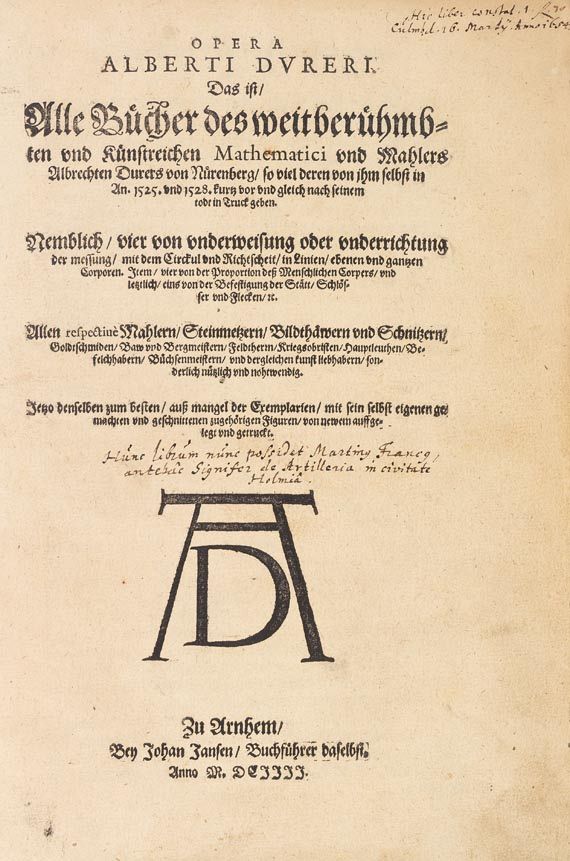 Hic liber constat. 1.
Culmb. d. 16. Martÿ. Anno
OPERA
ALBERTI DVRERI.
Das ist/
Alle Bücher des weitberühmb⸗
ten vnd Künstreichen Mathematici vnd Mahlers
Albrechten Durers von Nürenberg/ so viel deren von ihm selbst in
An. 1525. vnd 1528. kurtz vor vnd gleich nach seinem
todt in Truck geben.
Nemblich/ vier von vnderweisung oder vnderrichtung
der messung/ mit dem Circkul vnd Richtscheit/ in Linien/ ebenen vnd gantzen
Corporen. Item/ vier von der Proportion deß Menschlichen Corpers/ vnd
letztlich/ eins von der Befestigung der Stätt/ Schlös⸗
ser vnd Flecken/ ꝛc.
Allen respectiuè Mahlern/ Steinmetzern/ Bildthäwern vnd Schnitzern/
Goldtschmiden/ Baw vnd Bergmeistern/ Feldtherrn/ Kriegsobristen/ Hauptleuthen/ Be⸗
felchhabern/ Büchsenmeistern/ vnd dergleichen kunst liebhabern/ son⸗
derlich nützlich vnd nohtwendig.
Jetzo denselben zum besten/ auß mangel der Exemplarien/ mit sein selbst eigenen ge⸗
machten vnd geschnittenen zugehörigen Figuren/ von newem auffge⸗
legt vnd getruckt.
Hunc librum nunc possidet Martiny Francq,
antehac Signifer de Artilleria in civitate
Holmiâ.
AD
Zu Arnhem/
Bey Johan Jansen/ Buchführer daselbst.
Anno M. DCIIII.